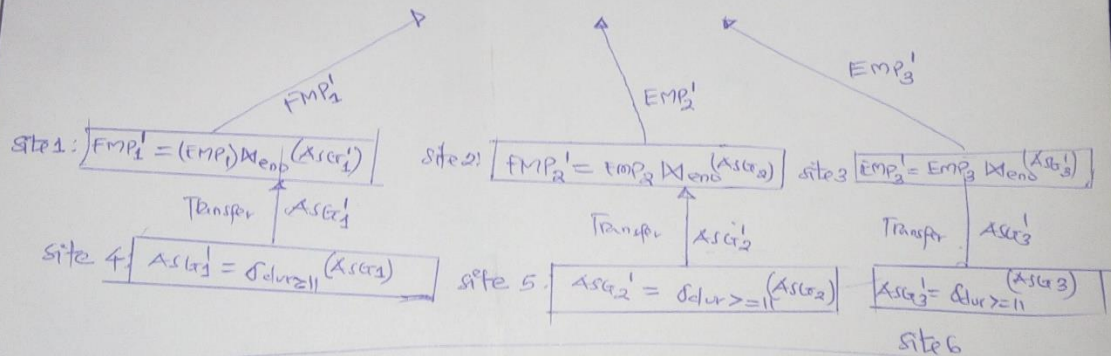 EMP₁' EMP₂' EMP₃'
Site 1: EMP₁' = (EMP₁) ⋈eno (ASG₁')
Site 2: EMP₂' = EMP₂ ⋈eno (ASG₂)
Site 3 EMP₃' = EMP₃ ⋈eno (ASG₃')
Transfer ASG₁' Transfer ASG₂' Transfer ASG₃'
Site 4: ASG₁' = σdur≥11 (ASG1)
Site 5: ASG₂' = σdur>=11 (ASG₂)
ASG₃' = σdur>=11 (ASG3)
Site 6